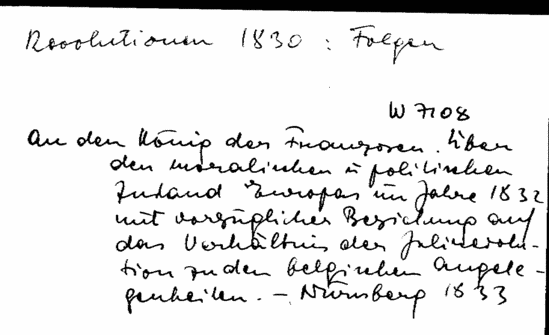 Revolutionen 1830 : Folgen
W 7108
An den König der Franzosen. Über
den moralischen u politischen
Zustand Europas im Jahre 1832
mit vorzüglicher Beziehung auf
das Verhältnis der Julirevolu-
tion zu den belgischen Angele-
genheiten. – Nürnberg 1833